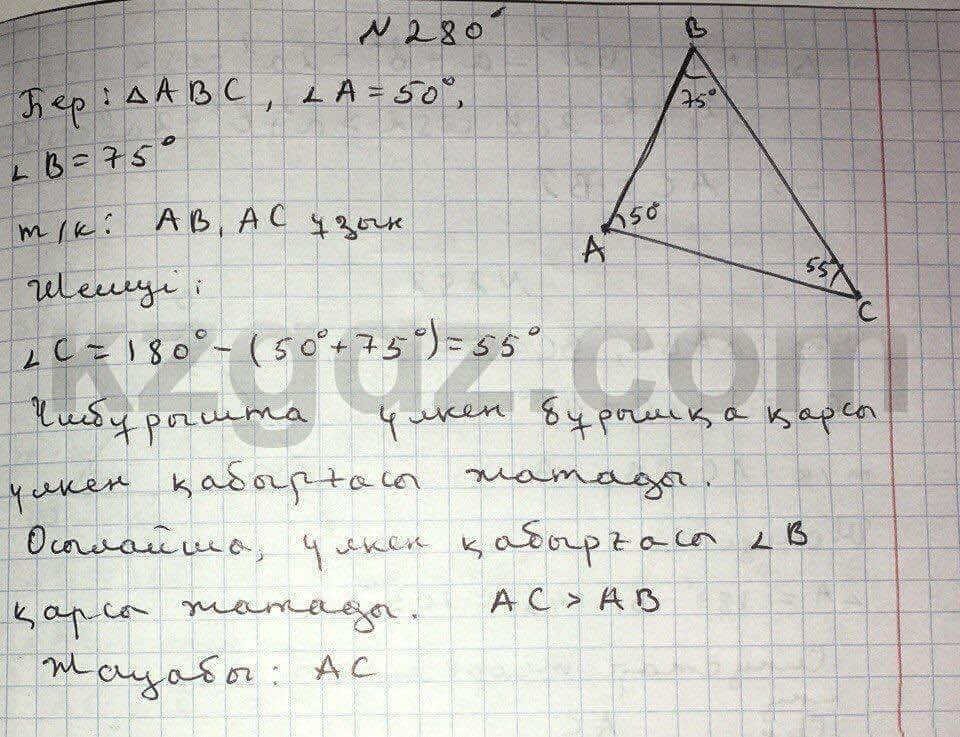 N 280
Бер: △ABC, ∠A=50°,
∠B=75°
т/к: AB, AC ұзын
Шешуі:
∠C=180°-(50°+75°)=55°
Үшбұрышта үлкен бұрышқа қарсы
үлкен қабырғасы жатады.
Осылайша, үлкен қабырғасы ∠B
қарсы жатады. AC > AB
Жауабы: AC
B
75°
50°
A
55
C
kzgdz.com